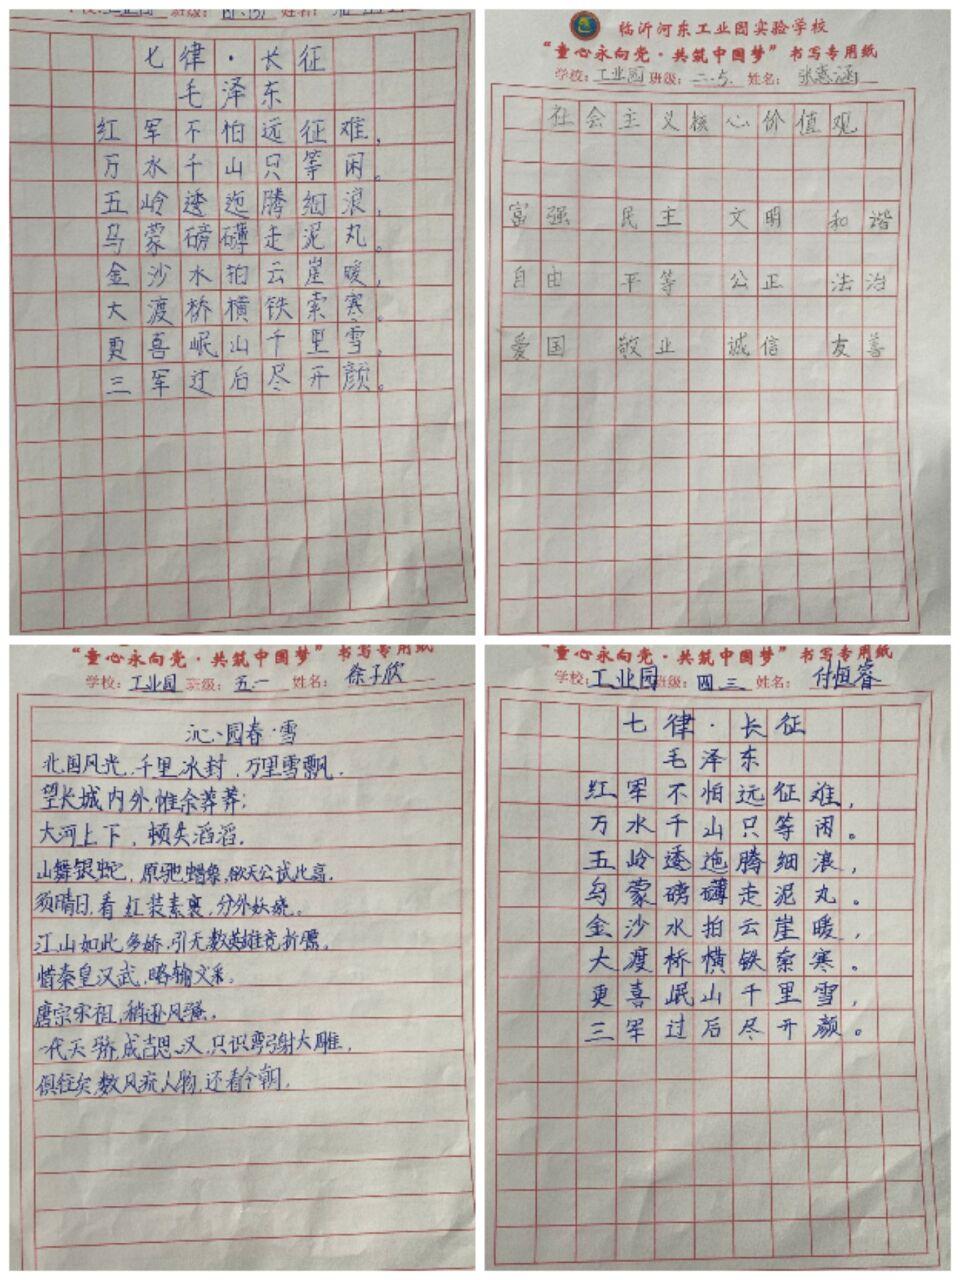 七律·长征
毛泽东
红军不怕远征难，
万水千山只等闲。
五岭逶迤腾细浪，
乌蒙磅礴走泥丸。
金沙水拍云崖暖，
大渡桥横铁索寒。
更喜岷山千里雪，
三军过后尽开颜。
临沂河东工业园实验学校
“童心永向党·共筑中国梦”书写专用纸
学校：工业园 班级：二.5. 姓名：张惠涵
社会主义核心价值观
富强 民主 文明 和谐
自由 平等 公正 法治
爱国 敬业 诚信 友善
“童心永向党·共筑中国梦”书写专用纸
学校：工业园 班级：五.一 姓名：徐子欣
沁园春·雪
北国风光，千里冰封，万里雪飘。
望长城内外，惟余莽莽；
大河上下，顿失滔滔。
山舞银蛇，原驰蜡象，欲天公试比高。
须晴日，看红装素裹，分外妖娆。
江山如此多娇，引无数英雄竞折腰。
惜秦皇汉武，略输文采。
唐宗宋祖，稍逊风骚。
一代天骄，成吉思汉，只识弯弓射大雕。
俱往矣，数风流人物，还看今朝。
“童心永向党·共筑中国梦”书写专用纸
学校：工业园 班级：四三 姓名：付恒睿
七律·长征
毛泽东
红军不怕远征难，
万水千山只等闲。
五岭逶迤腾细浪，
乌蒙磅礴走泥丸。
金沙水拍云崖暖，
大渡桥横铁索寒。
更喜岷山千里雪，
三军过后尽开颜。